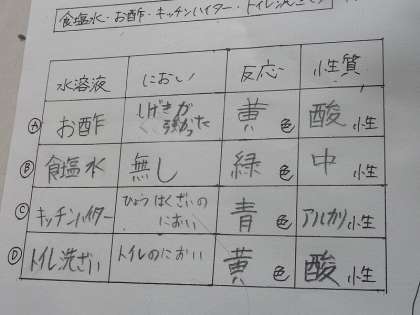 食塩水・お酢・キッチンハイター・トイレ洗ざい
水溶液 におい 反応 性質
Ⓐ お酢 しげきが強かった 黄色 酸性
Ⓑ 食塩水 無し 緑色 中性
Ⓒ キッチンハイター ひょうはくざいのにおい 青色 アルカリ性
Ⓓ トイレ洗ざい トイレのにおい 黄色 酸性